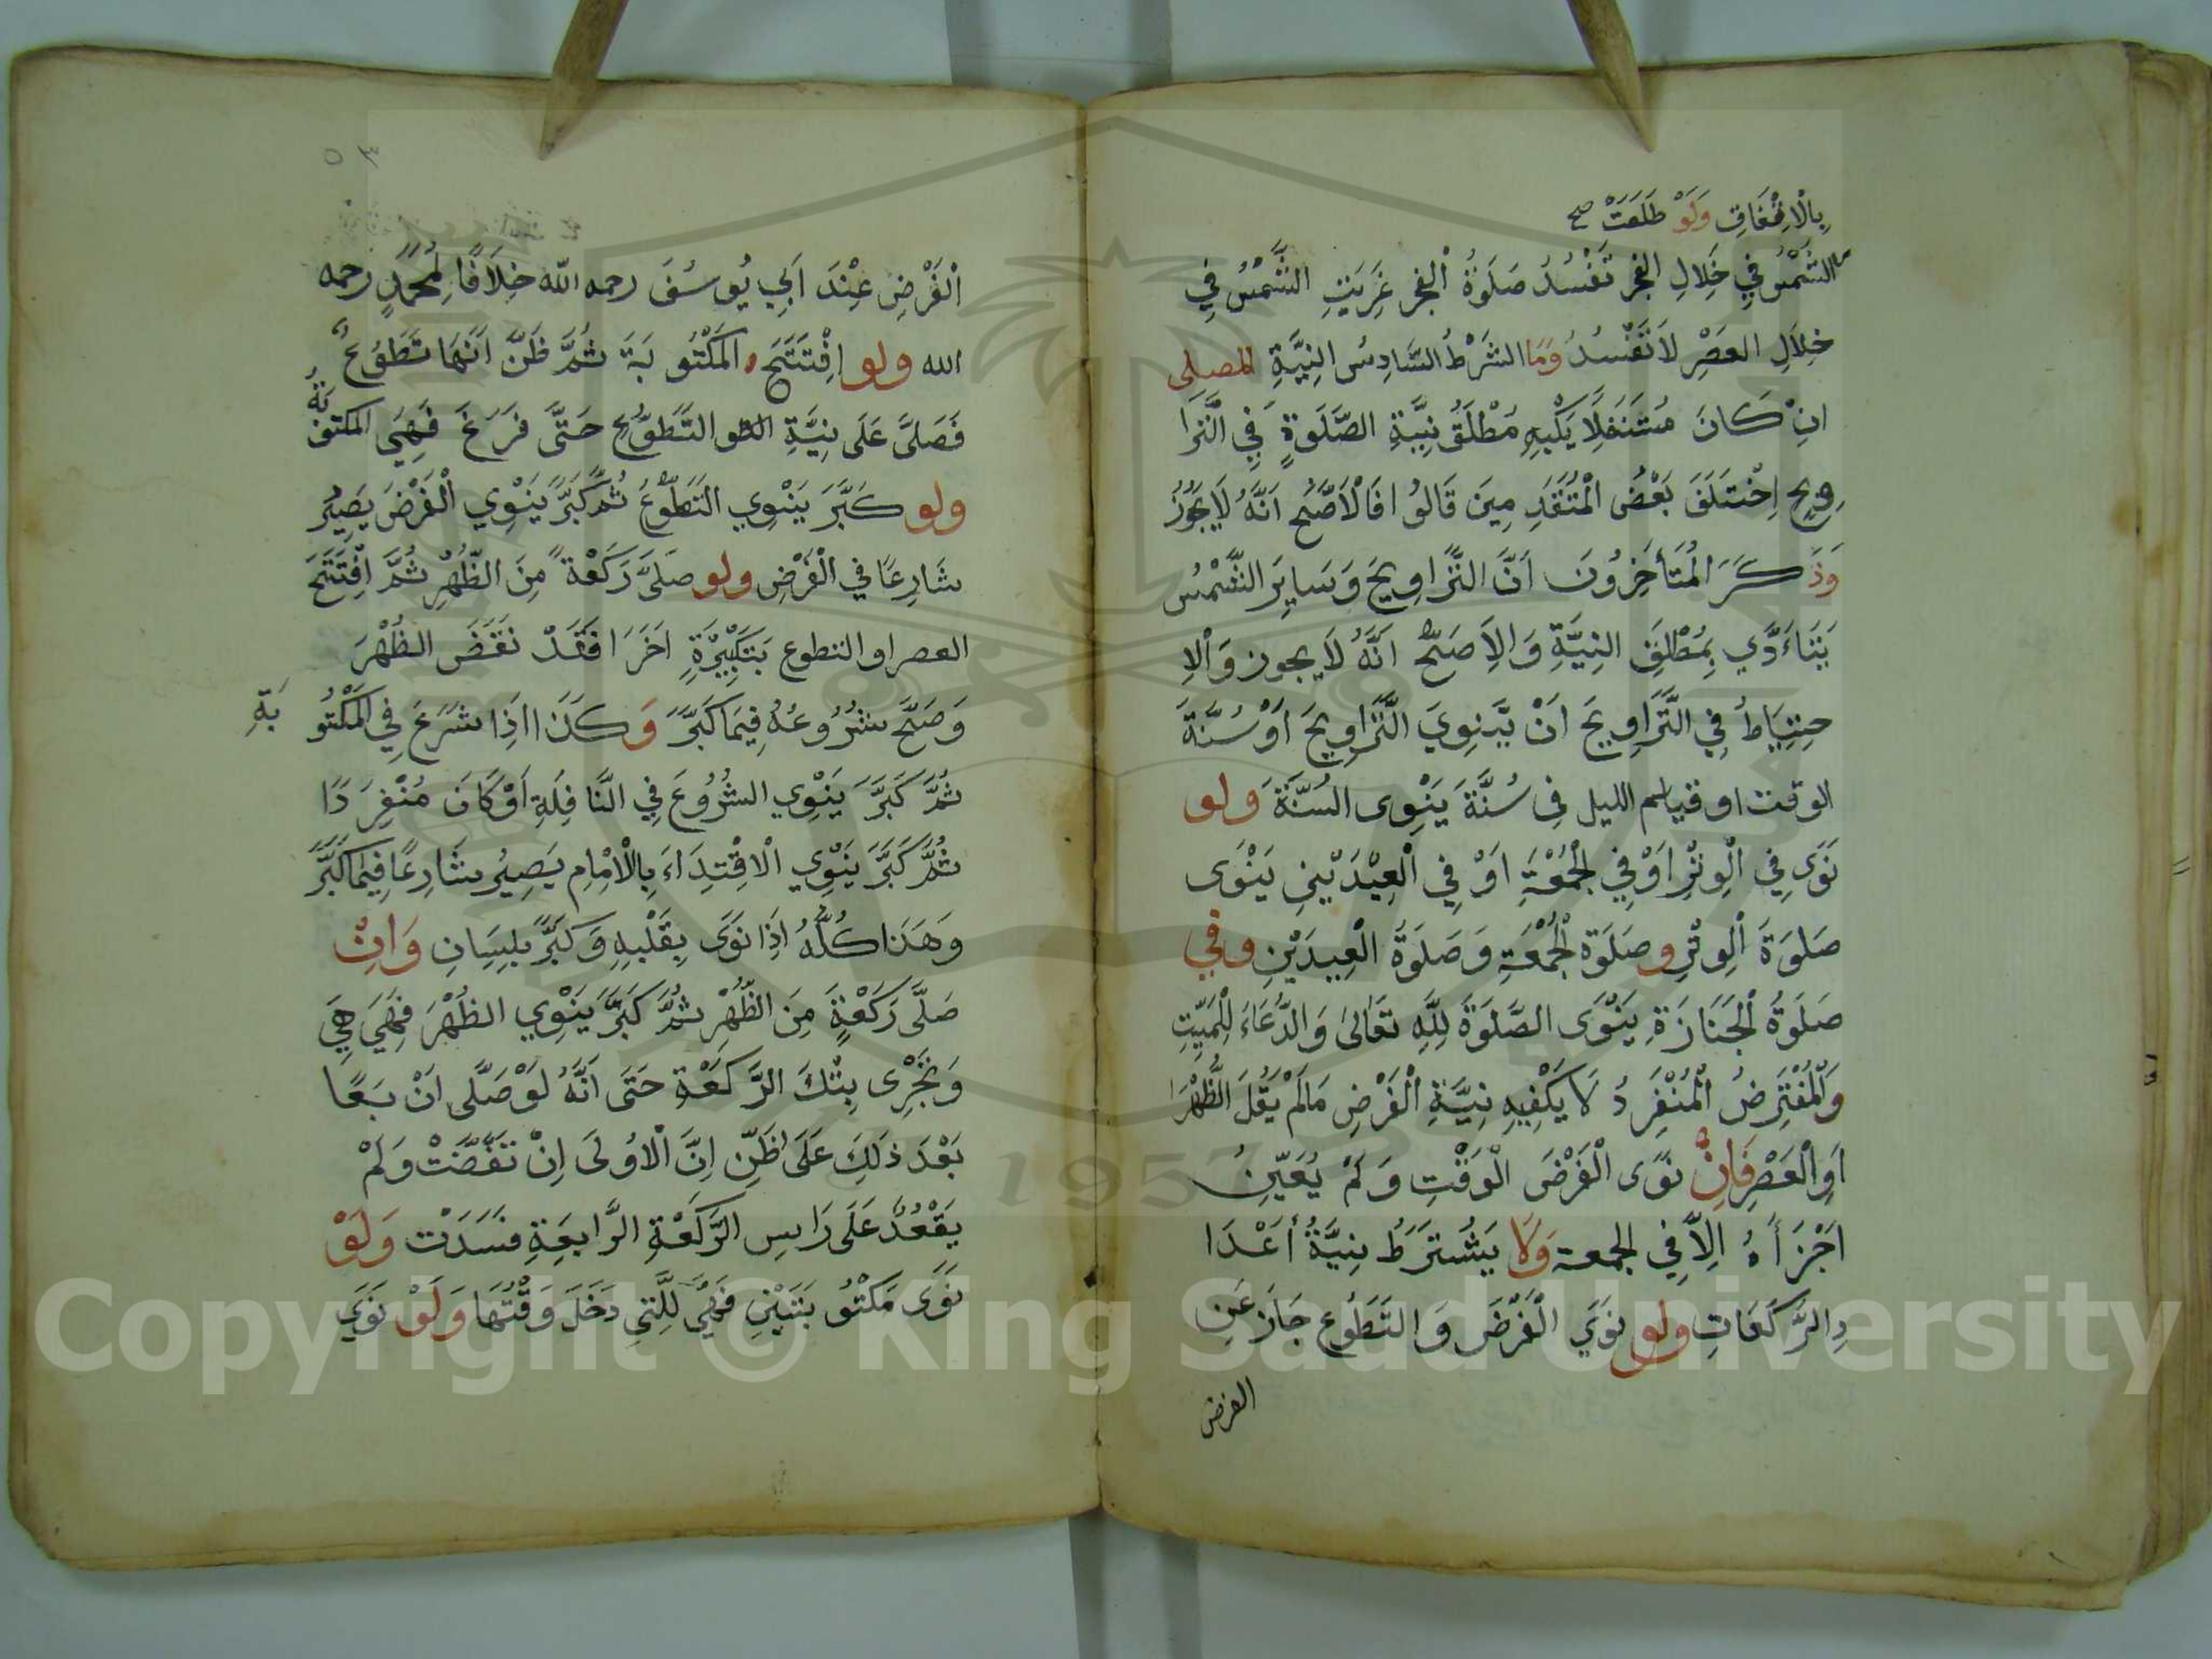 بِالْاِتِّفَاقِ وَلَوْ طَلَعَتْ صح
الشَّمْسُ فِي خِلَالِ الفجر تَفْسُدُ صَلَوةُ الْفجر غَرَبَتِ الشَّمْسُ فِي
خِلَالِ العَصْرِ لَا تَفْسُدُ وَمَا الشَرْطُ السَّادِسُ النِيَّةِ المصلى
اِنْ كَانَ مُتَنَفِلًا يَكْفِيهِ مُطْلَقُ نِيَّةِ الصَّلَوةِ فِي التَّرَا
وِيحِ اِخْتَلَفَ بَعْضُ الْمُتَقَدِمِينَ قَالُوا فَالْاَصَّح اَنَّهُ لَا يَجُوزُ
وَذَكَرَ الْمُتَأَخِرُونَ اَنَّ التَّرَاوِيحَ وَسَايِرَ الشَّمْسُ
يَتَاَدَّي بِمُطْلَقِ النِيَّةِ وَالاَصَحّ اَنَّهُ لَا يجوز وَالْاِ
حتِيَاطُ فِي التَّرَاوِيحَ اَنْ يَنوِيَ التَّرَاوِيحَ اَوْ سُنَّةَ
الوقت او قيام الليل فِى سُنَّةَ يَنْوِى السُنَّةَ وَلو
نَوَى فِي الْوِتْرِ اَوْ فِي الْجُمْعَةِ اَوْ فِي الْعِيْدَيْنِ يَنْوَى
صَلوَةَ الْوِتْرِ وصَلَوَة الْجُمْعَةِ وَصَلَوَةُ الْعِيدَيْنِ وفي
صَلَوةُ الْجَنَازَةِ يَنْوَى الصَّلوَةَ لِلّٰهِ تَعَالىٰ وَالدُّعَاءَ لِلْمَيِّتِ
وَالْمُفْتَرِضُ الْمُنْفَرِدُ لَا يَكْفِيهِ نِيَّةِ الْفَرْضِ مَا لَمْ يَقُلَ الظُّهْرَ
اَوِالْعَصْرِ فَاِنْ نَوَى الْفَرْضَ الْوَقْتِ وَلَمْ يُعَيِّنْ
اَجْزَأَهُ اِلَّا فِي الجمعة وَلَا يَشْتَرَطُ نِيَّةُ اَعْدَا
دِ الرَّكَعَاتِ ولو نَوَي الْفَرْضَ وَالتَطَوُع جَازَ عَنِ
الفرض
٥٣
الْفَرْضِ عِنْدَ اَبِي يُوسُفَ رحمه الله خِلَافًا لِمُحَمَّدٍ رحمه
الله ولو اِفْتَتَحَ المَكْتُوبَةَ ثُمَّ ظَنَّ اَنَّهَا تَطَوُعٌ
فَصَلَّى عَلَى نِيَّةِ التَّطَوُّعِ حَتَّى فَرَغَ فَهِيَ المكتوبَةُ
ولو كَبَّرَ يَنْوِي التَطَوُّعُ ثُمَّ كَبَّرَ يَنْوِي الْفَرْضَ يَصِيرُ
شَارِعًا في الْفَرْضِ ولو صَلَّى رَكَعْةً مِنَ الظُّهْرِ ثُمَّ اِفْتَتَحَ
العصر او التطوع بَتَكْبِيْرَةٍ اخَرَا فَقَدْ نَقَضَ الظُهْرَ
وَصَحَّ شُرُوعُهُ فِيمَا كَبَّرَ وَكَذَا اِذَا شَرَعَ فِي الْمَكْتُوبَةِ
ثُمَّ كَبَّرَ يَنْوِي الشُرُوعَ فِي النَّافِلَةِ اَوْ كَانَ مُنْفِرَدًا
ثُمَّ كَبَّرَ يَنْوِي الْاقْتِدَاءَ بِالْاِمِامِ يَصِيرُ شَارِعًا فِيمَا كَبَّرَ
وَهَذا كُلُّهُ اِذَا نَوَى بِقَلْبِهِ وَكَبَّرَ بِلِسَانِ وَاِنْ
صَلَّى رَكَعْةٍ مِنَ الظُّهْرِ ثُمَّ كَبَّرَ يَنْوِي الظُهْرَ فَهِيَ هِيَ
وَيَجْرِى بِتْكَ الرَّكَعْةِ حَتَى اَنَّهُ لَوْ صَلَّى اَنْ بَعًا
بَعْدَ ذلِكَ عَلَى ظَنِّ اِنَّ الْاُولَى اِنْتَقَضَتْ وَلَمْ
يَقْعُدْ عَلَى رَاسِ الرَّكَعْةِ الرَّابِعَةِ فسَدَتْ وَلَوْ
نَوَى مَكْتُوبَتَيْنِ فَهِيَ لِلَّتِي دَخَلَ وَقْتُهَا وَلَوْ نَوَي
Copyright © King Saud University
1957